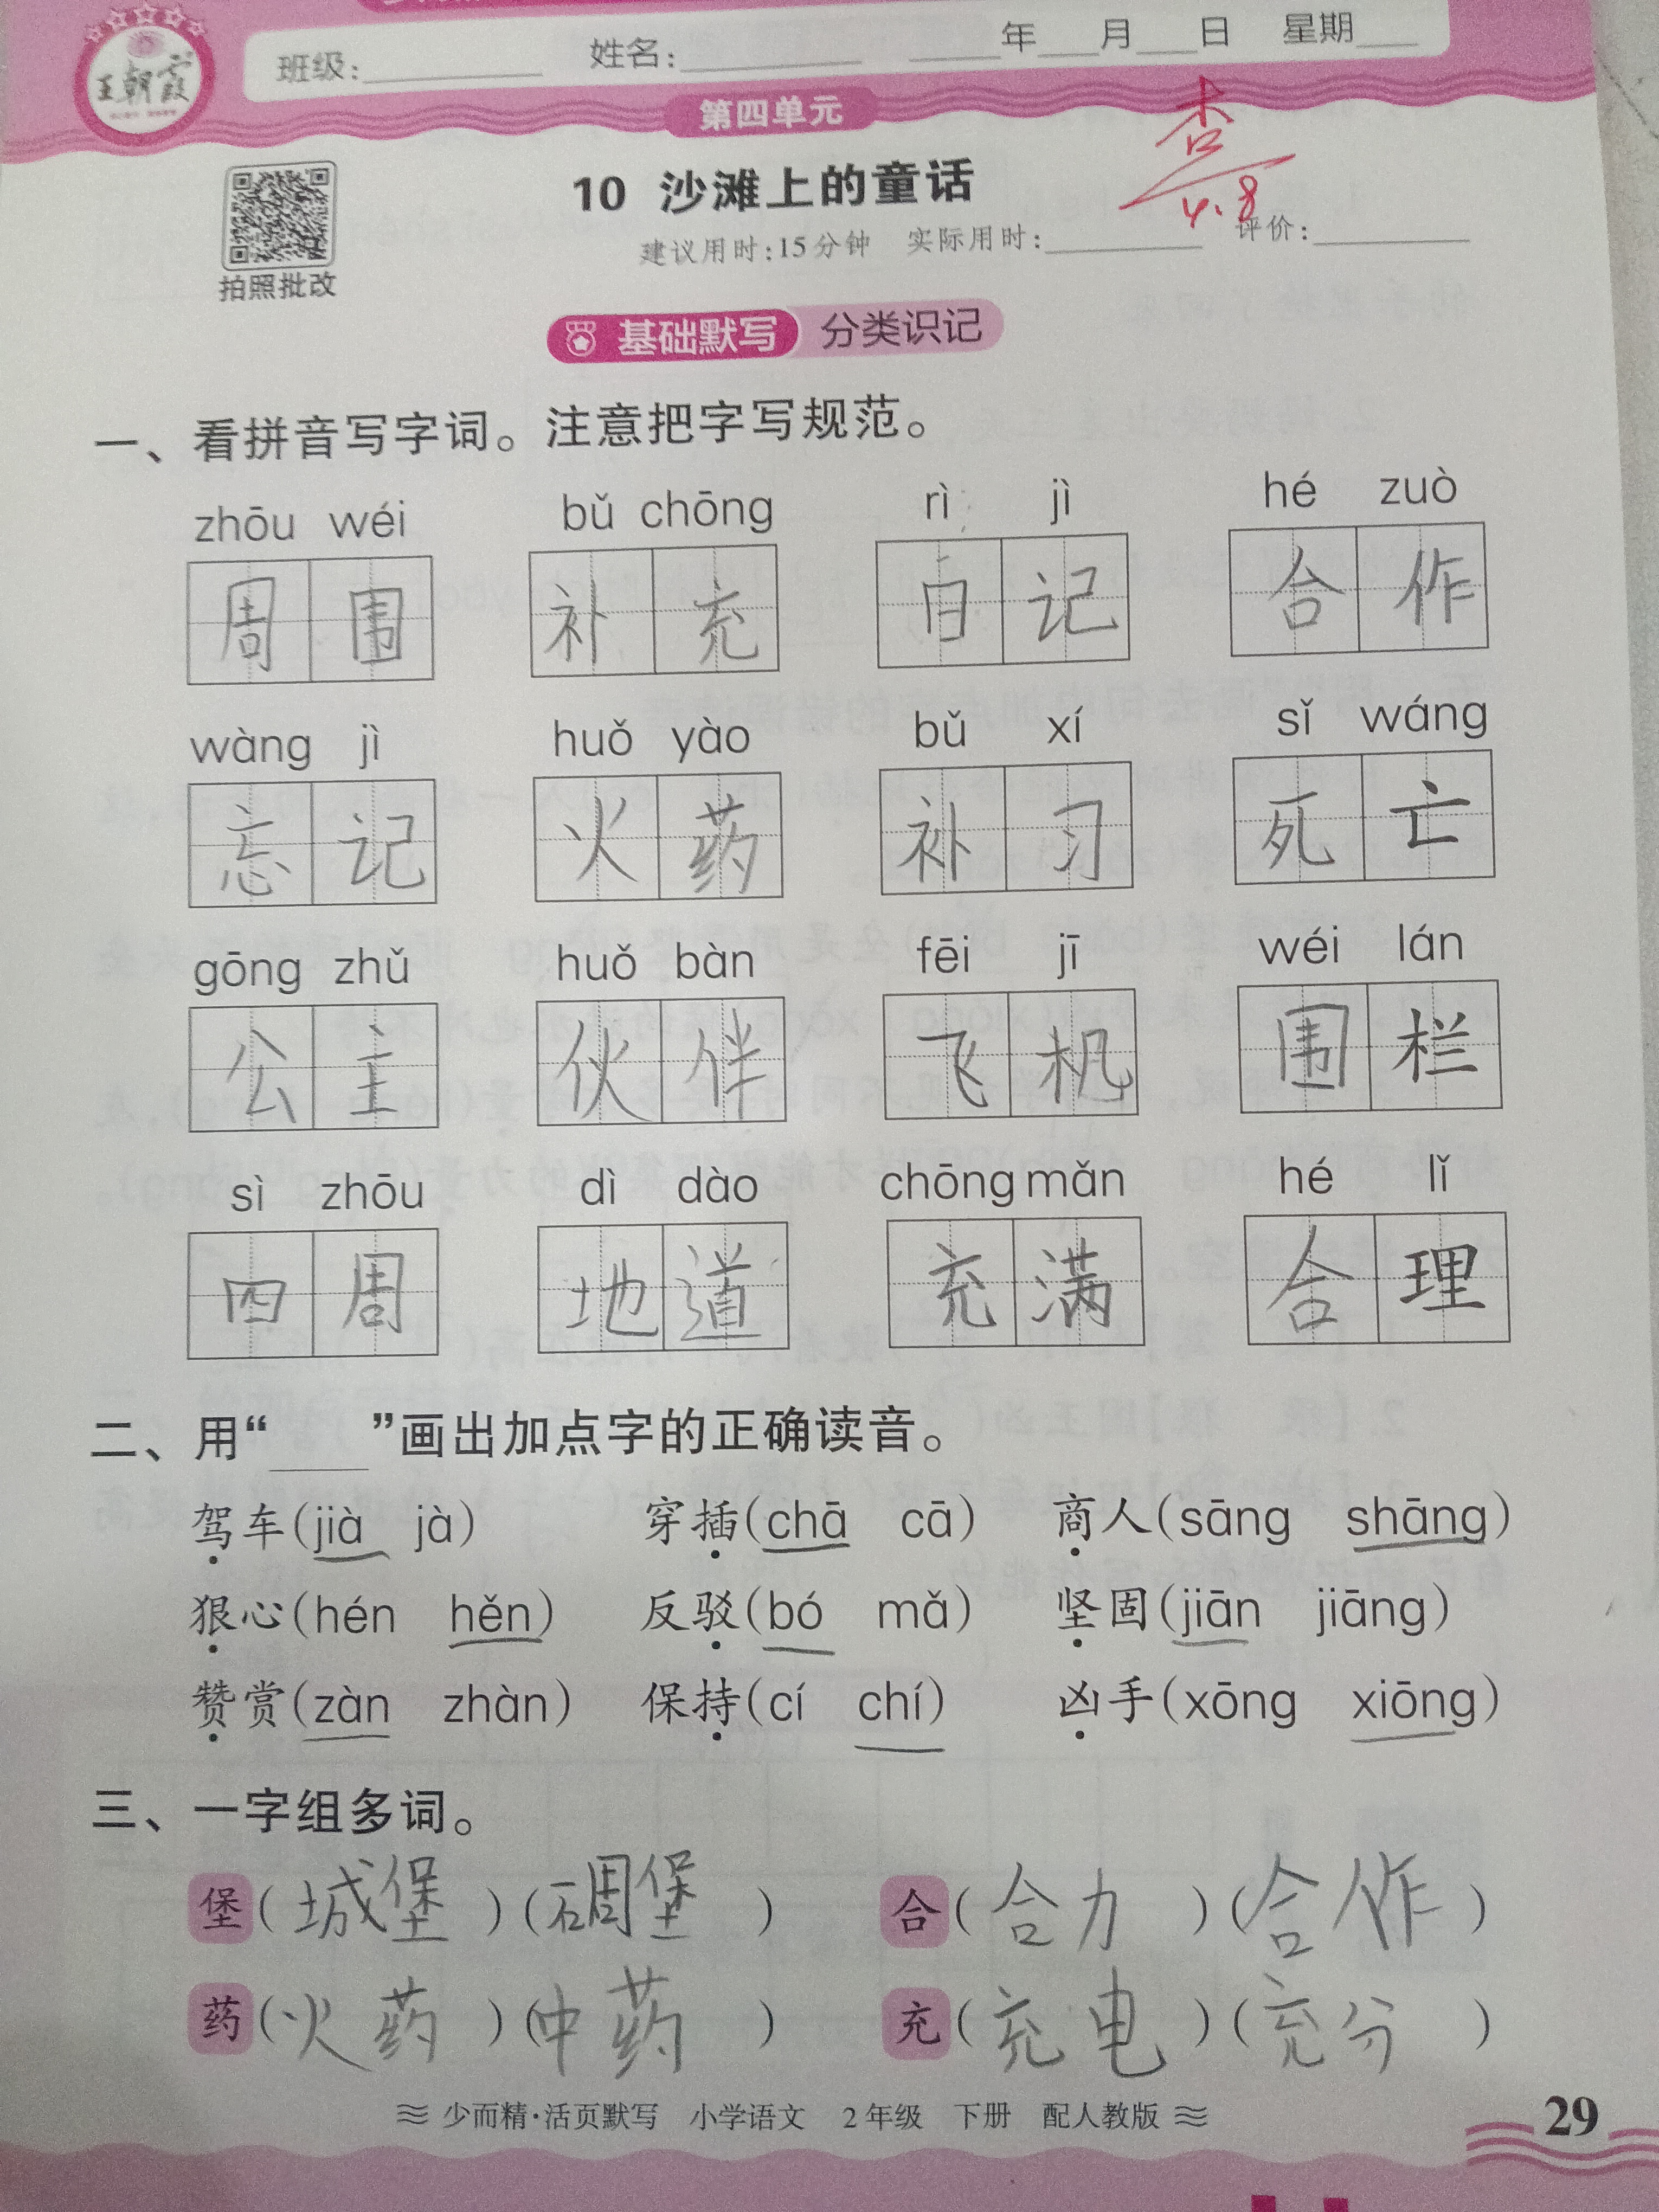 王朝霞
班级: 姓名: 年 月 日 星期
第四单元
杏
4.8
10 沙滩上的童话
建议用时:15分钟 实际用时: 评价:
拍照批改
基础默写 分类识记
一、看拼音写字词。注意把字写规范。
zhōu wéi bǔ chōng rì jì hé zuò
周围 补充 日记 合作
wàng jì huǒ yào bǔ xí sǐ wáng
忘记 火药 补习 死亡
gōng zhǔ huǒ bàn fēi jī wéi lán
公主 伙伴 飞机 围栏
sì zhōu dì dào chōng mǎn hé lǐ
四周 地道 充满 合理
二、用“ ”画出加点字的正确读音。
驾车(jià jà) 穿插(chā cā) 商人(sāng shāng)
狠心(hén hěn) 反驳(bó mǎ) 坚固(jiān jiāng)
赞赏(zàn zhàn) 保持(cí chí) 凶手(xōng xiōng)
三、一字组多词。
堡(城堡)(碉堡) 合(合力)(合作)
药(火药)(中药) 充(充电)(充分)
少而精·活页默写 小学语文 2年级 下册 配人教版
29